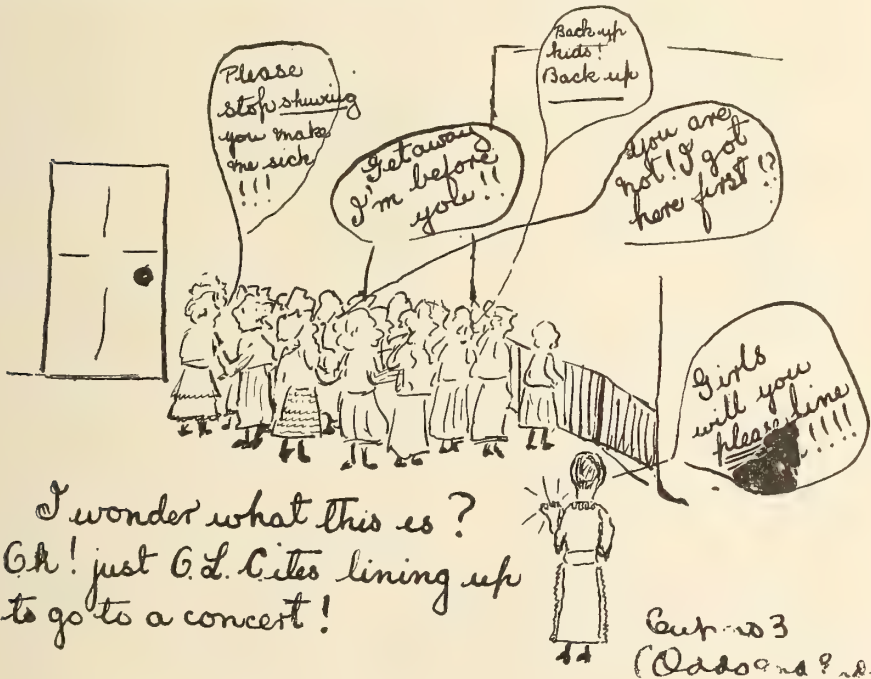 Please
stop shuving
you make
me sick
!!!
Get away
I'm before
you!!
Back up
kids!
Back up
You are
not! I got
here first!?
Girls
will you
please line
!!!!
I wonder what this is?
Oh! just O.L. Cites lining up
to go to a concert!
no 3
(Odds and